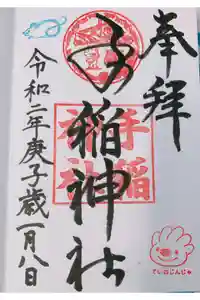 奉拝
手稲神社
手稲
神社
令和二年庚子歳一月八日
ていねじんじゃ